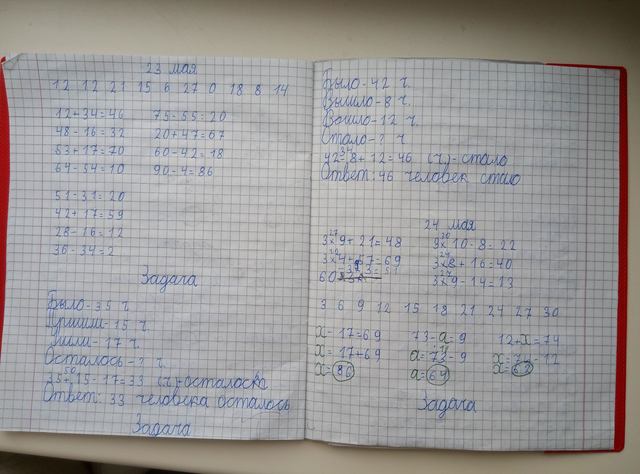 23 мая
12 12 21 15 6 27 0 18 8 14
12+34=46 75-55=20
48-16=32 20+47=67
53+17=70 60-42=18
64-54=10 90-4=86
51-31=20
42+17=59
28-16=12
36-34=2
Задача
Было-35 ч.
Пришли-15 ч.
Ушли-17 ч.
Осталось-? ч.
50
35+15-17=33 (ч.)-осталось
Ответ: 33 человека осталось
Задача
Было-42 ч.
Вышло-8 ч.
Вошло-12 ч.
Стало-? ч
34
42-8+12=46 (ч.)-стало
Ответ: 46 человек стало
24 мая
27 30
3×9+21=48 3×10-8=22
12 24
3×4+57=69 3×8+16=40
27
3×9-14=13
3 6 9 12 15 18 21 24 27 30
x-17=69 73-а=9 12+x=74
x=17+69 а=73-9 x=74-12
x=86 а=64 x=62
Задача